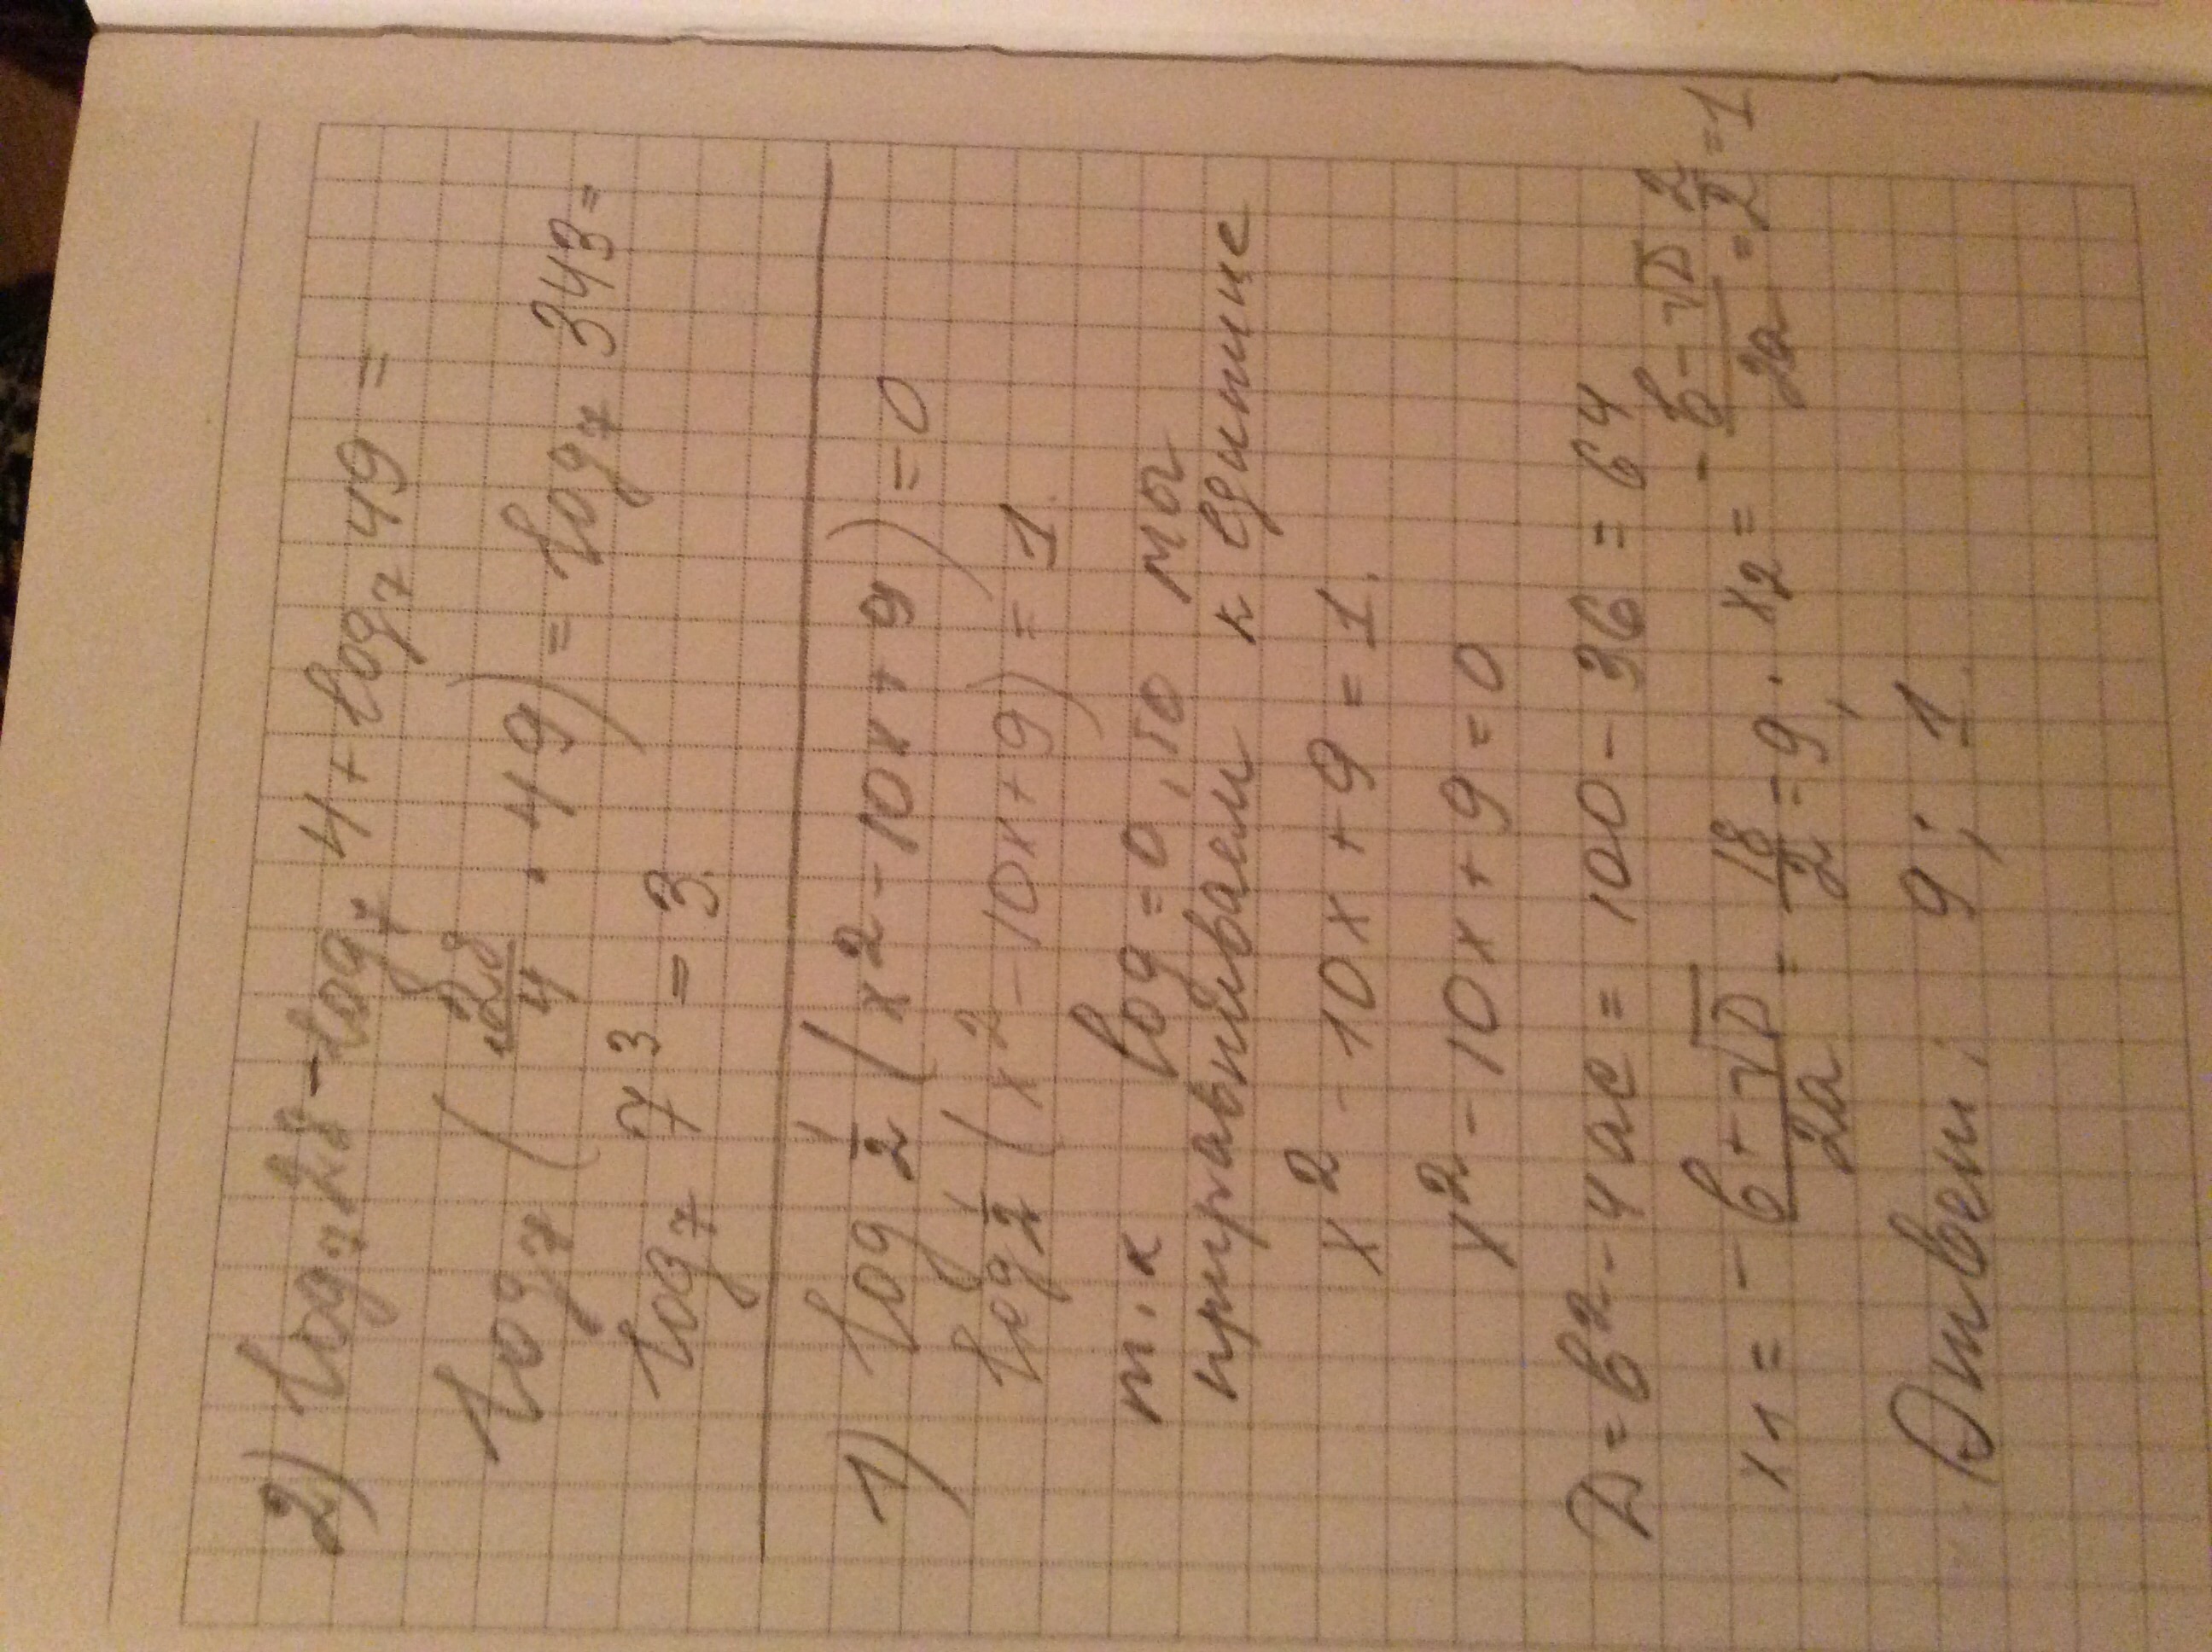 2) log₇ 28 - log₇ 4 + log₇ 49 =
log₇ (28/4 · 49) = log₇ 343 =
log₇ 7³ = 3.
1) log 1/2 (x² - 10x + 9) = 0
log 1/2 (x² - 10x + 9) = 1.
т.к log = 0, то мы
приравниваем к единице
x² - 10x + 9 = 1.
x² - 10x + 9 = 0
D = b² - 4ac = 100 - 36 = 64
x1 = -b+√D/2a = 18/2 = 9; x2 = -b-√D/2a = 2/2 = 1
Ответ: 9; 1.